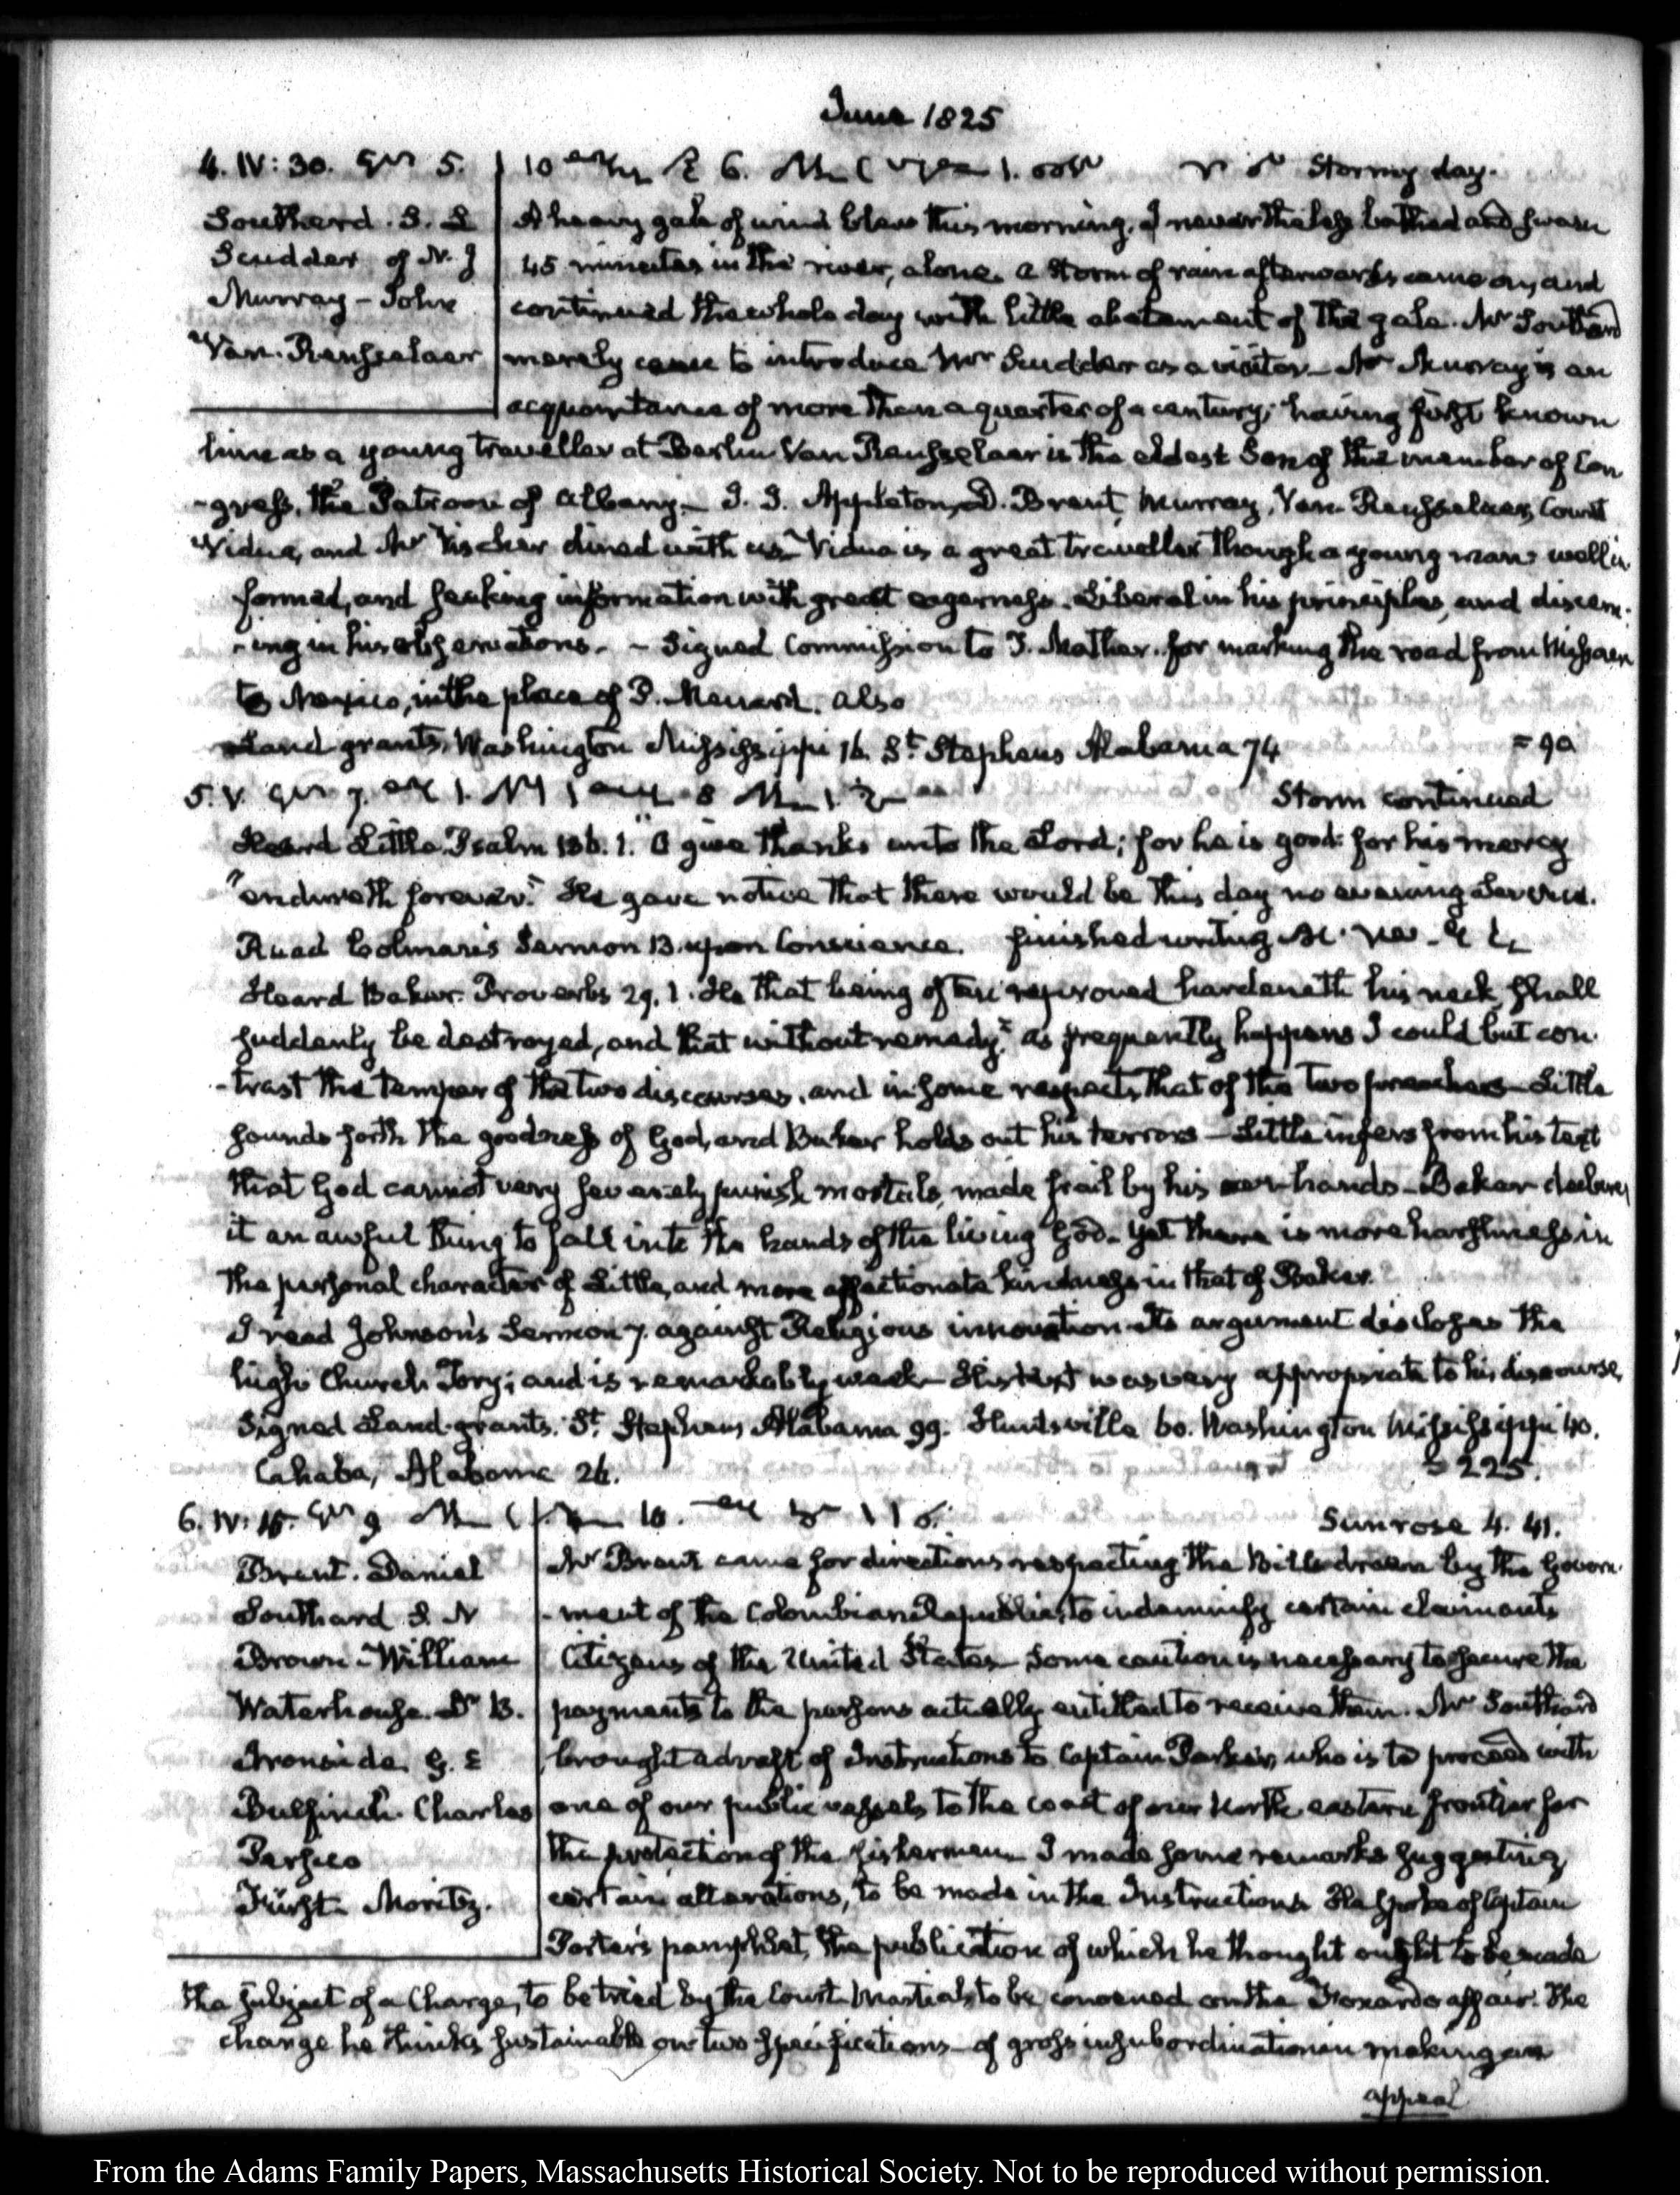 June 1825
4. IV: 30. 5. 10 6. 1. Stormy day.
Southard. S. L
Scudder of N. J
Murray - John
Van Renſselaer
A heavy gale of wind blew this morning. I nevertheleſs bathed and ſwam
45 minutes in the river, alone. a Storm of rain afterwards came on, and
continued the whole day with little abatement of the gale. Mr Southard
merely came to introduce Mr Scudder as a visitor— Mr Murray is an
acquaintance of more than a quarter of a century; having firſt known
him as a young traveller at Berlin Van Renſselaer is the eldest Son of the member of Con
-greſs, the Patroon of Albany— J. J. Appleton, D. Brent, Murray, Van Renſselaer, Count
Vidua, and Mr Viſcher dined with us— Vidua is a great traveller though a young man well in
formed, and ſeeking information with great eagerneſs. Liberal in his principles, and discern-
-ing in his obſervations. — Signed Commiſsion to T. Mather. for marking the road from Miſsouri
to Mexico, in the place of P. Menard. also
Land grants, Washington Miſsiſsippi 16. St. Stephens Alabama 74 = 90
5. V. 7. 1. 8 1. Storm continued
Heard Little. Psalm 136. 1. "O give thanks unto the Lord; for he is good: for his mercy
"endureth forever." He gave notice that there would be this day no evening Service.
Read Colman's Sermon 13. upon Conscience. finished writing
Heard Baker. Proverbs 29. 1. He that being often reproved hardeneth his neck, ſhall
ſuddenly be destroyed, and that without remedy." as frequently happens I could but con-
-trast the temper of the two discourses. and in ſome respects that of the two preachers— Little
ſounds forth the goodneſs of God, and Baker holds out his terrors— Little infers from his text
that God cannot very ſeverely punish mortals, made frail by his own hands— Baker declares
it an awful thing to fall into the hands of the living God— yet there is more harſhneſs in
the perſonal character of Little, and more affectionate kindneſs in that of Baker.
I read Johnson's Sermon 7. against Religious innovation— Its argument discloſes the
high Church Tory; and is remarkably weak— His text was very appropriate to his discourse,
Signed Land-grants. St. Stephens Alabama 99. Huntsville 60. Washington Miſsiſsippi 40.
Cahaba, Alabama 26. = 225.
6. IV: 15. 9 10. Sunrose 4. 41.
Brent. Daniel
Southard S. L
Brown - William
Waterhouſe. Dr B.
Ironside. G. E
Bulfinch. Charles
Perſico
Fürſt. Moritz.
Mr Brent came for directions respecting the Bills drawn by the Govern-
-ment of the Colombian Republic, to indemnify certain claimants
Citizens of the United States— Some caution is neceſsary to ſecure the
payments to the perſons actually entitled to receive them. Mr Southard
brought a draft of Instructions to Captain Parker, who is to proceed with
one of our public veſsels to the coast of our North eastern frontier for
the protection of the fishermen— I made ſome remarks ſuggesting
certain alterations, to be made in the Instructions He ſpoke of Captain
Porter's pamphlet, the publication of which he thought ought to be made
the ſubject of a Charge, to be tried by the Court Martial, to be convened on the Foxardo affair. The
charge he thinks ſustainable on two ſpecifications— of groſs inſubordination in making an
appeal
From the Adams Family Papers, Massachusetts Historical Society. Not to be reproduced without permission.